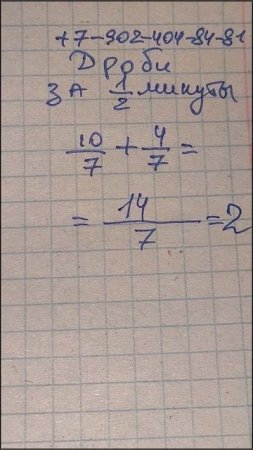 +7-902-404-84-81
Дроби
За 1/2 минуты
10/7 + 4/7 =
= 14/7 = 2